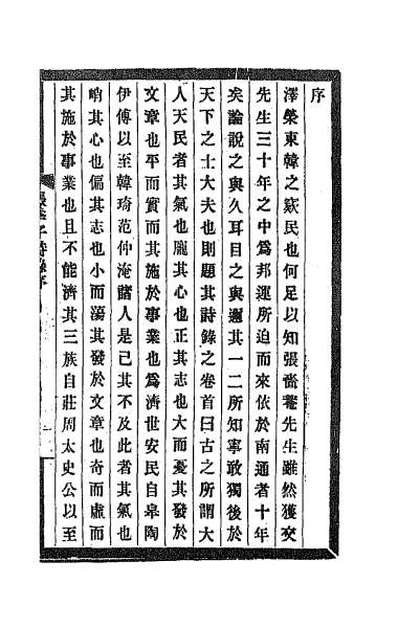 序
澤榮東韓之窾民也何足以知張嗇菴先生雖然獲交
先生三十年之中爲邦運所迫而來依於南通者十年
矣論說之與久耳目之與邇其一二所知寧敢獨後於
天下之士大夫也則題其詩錄之卷首曰古之所謂大
人天民者其氣也龐其心也正其志也大而憂其發於
文章也平而實而其施於事業也爲濟世安民自皋陶
伊傅以至韓琦范仲淹諸人是已其不及此者其氣也
峭其心也偏其志也小而蕩其發於文章也奇而虛而
其施於事業也且不能濟其三族自莊周太史公以至